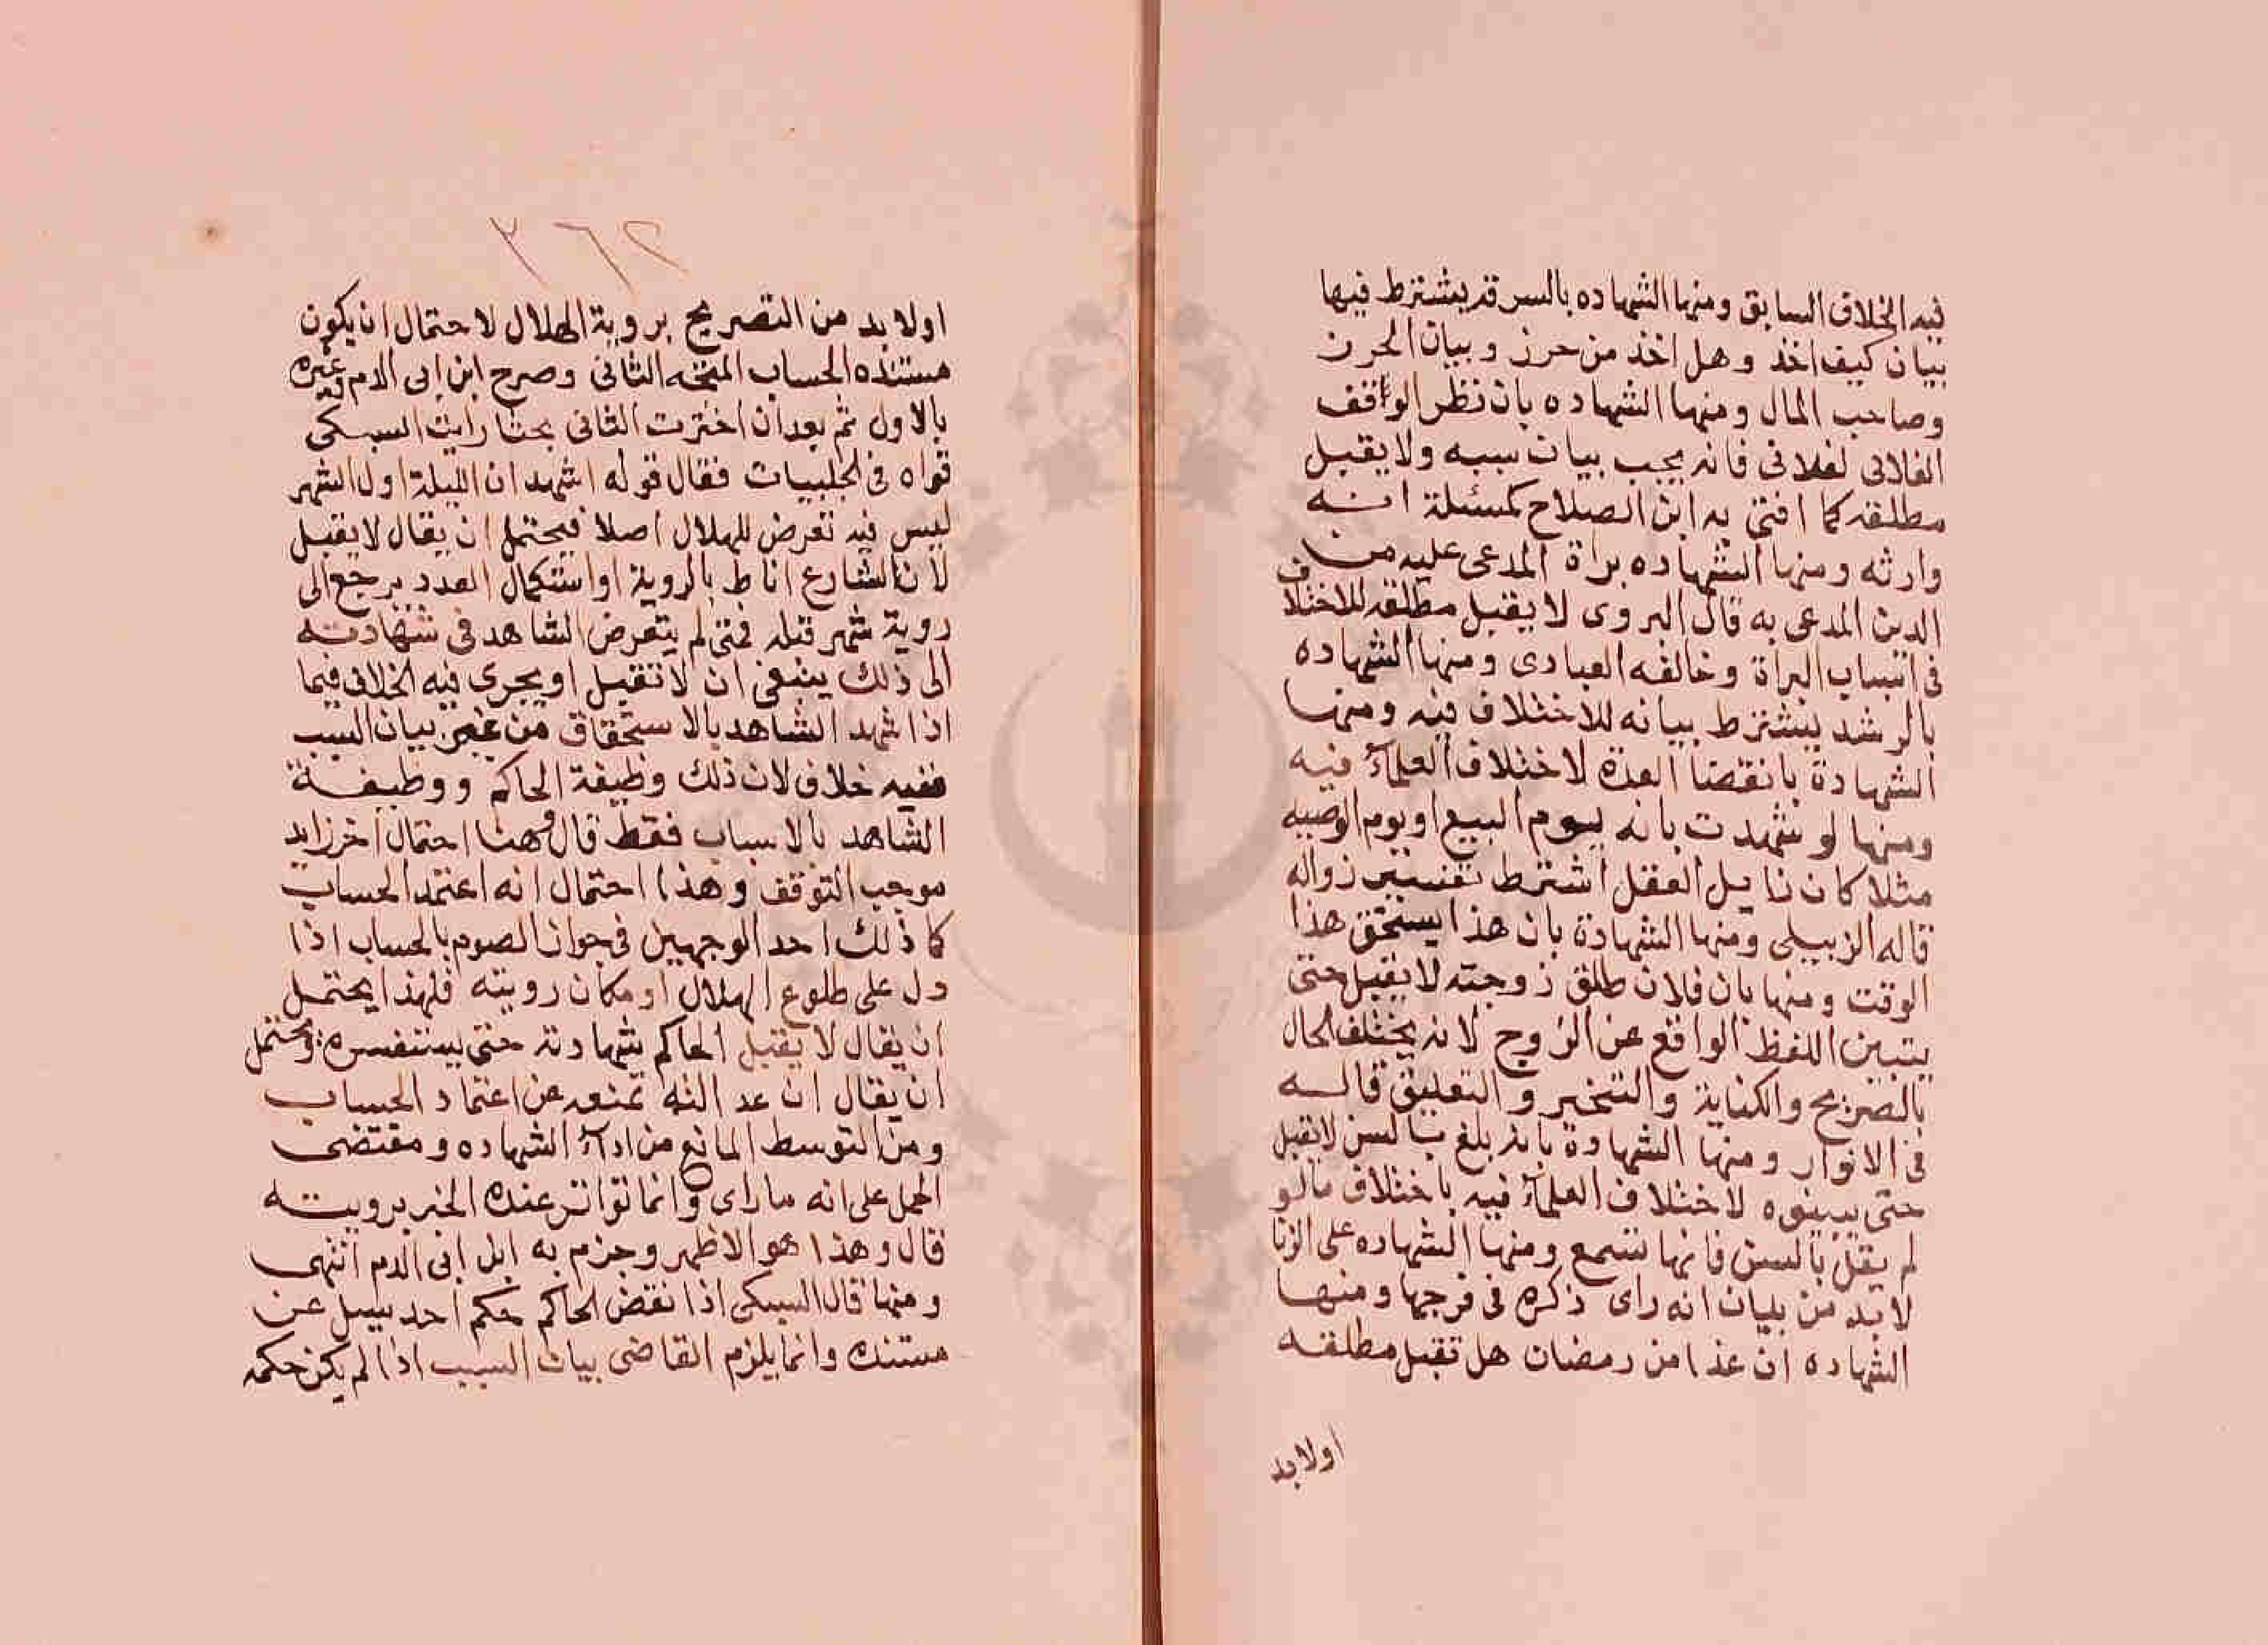 فيه الخلاف السابق ومنها الشهاده بالسرقه يشترط فيها
بيان كيف اخذ وهل اخذ من حرز وبيان الحرز
وصاحب المال ومنها الشهاده بان نظر الواقف
الفلانى لفلانى فانه يجب بيان سببه ولا يقبل
مطلقه كما افتى به ابن الصلاح كمسئلة انه
وارثه ومنها الشهاده براة المدعى عليه من
الدين المدعى به قال الهروى لا يقبل مطلقه للاختلاف
فى اسباب البراة وخالفه العبادى ومنها الشهاده
بالرشد يشترط بيانه للاختلاف فيه ومنها
الشهادة بانقضا العدة لاختلاف العلمآء فيه
ومنها لو شهدت بانه يوم البيع او يوم الوصيه
مثلا كان زايل العقل اشترط تفسير زواله
قاله الزبيلى ومنها الشهادة بان هذا يستحق هذا
الوقت ومنها بان فلان طلق زوجته لا يقبل حتى
يتبين اللفظ الواقع عن الزوج لانه يختلف الحال
بالصريح والكناية والتنجيز والتعليق قاله
فى الانوار ومنها الشهادة بانه بلغ بالسن لا يقبل
حتى يبينوه لاختلاف العلمآء فيه باختلاف مالو
لم يقل بالسن فانها تسمع ومنها الشهاده على الزنا
لا بد من بيان انه راى ذكره فى فرجها ومنها
الشهاده ان غدا من رمضان هل تقبل مطلقه
اولابد
٣٦٢
اولابد من التصريح بروية الهلال لاحتمال ان يكون
مستنده الحساب المتجه الثانى وصرح ابن ابى الدم وغيره
بالاول ثم بعد ان اخترت الثانى بحثا رايت السبكى
قواه فى الحلبيات فقال قوله اشهد ان الليلة اول الشهر
ليس فيه تعرض للهلال اصلا فيحتمل ان يقال لا يقبل
لان الشارع اناط بالروية او استكمال العدد يرجع الى
روية شهر قبله فمتى لم يتعرض الشاهد فى شهادته
الى ذلك ينبغى ان لا تقبل او يجرى فيه الخلاف فيما
اذا شهد الشاهد بالاستحقاق من غير بيان السبب
ففيه خلاف لان ذلك وظيفة الحاكم ووظيفة
الشاهد بالاسباب فقط قال وهنا احتمال اخر زايد
موجب التوقف وهذا احتمال انه اعتمد الحساب
كما ذلك احد الوجهين فى جواز الصوم بالحساب اذا
دل على طلوع الهلال او مكان رويته فلهذا يحتمل
ان يقال لا يقبل الحاكم شهادته حتى يستفسره ويحتمل
ان يقال ان عدالته تمنعه عن اعتماد الحساب
ومن التوسط المانع من ادآء الشهاده ومقتضى
الحمل على انه ما راى وانما تواتر عنده الخبر برويته
قال وهذا هو الاظهر وجزم به ابن ابى الدم انتهى
ومنها قال السبكى اذا نقض الحاكم حكم احد سيل عن
مستنده وانما يلزم القاضى بيان السبب اذا لم يكن حكمه